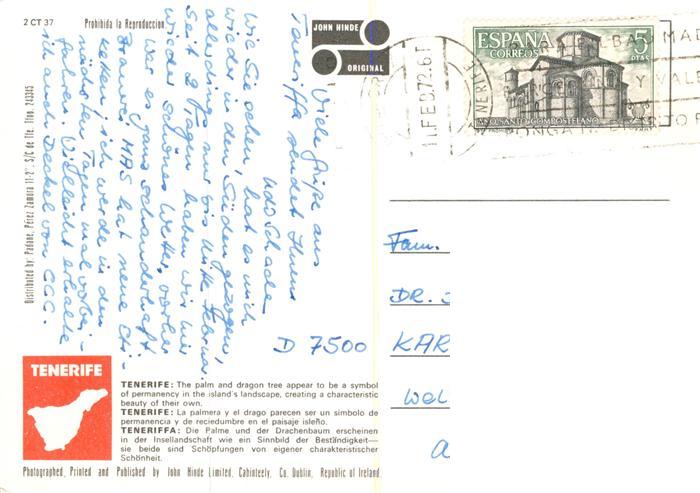 2 CT 37
Prohibida la Reproduccion.
JOHN HINDE
ORIGINAL
ESPAÑA
CORREOS
5
PTAS
AÑO SANTO COMPOSTELANO
11.FEB72.6T
TENERIFE
PONGA
Y
Viele Grüße aus
Teneriffa sendet Ihnen
Udo Schade
Wie Sie sehen, hat es mich
wieder in den Süden gezogen,
allerdings nur bis Mitte Februar.
Seit 2 Tagen haben wir hier
wieder schönes Wetter, vorher
war es ganz schauderhaft.
Braun's MAS hat neue Eti-
ketten, ich werde in den
nächsten Tagen mal vorbei-
fahren. Vielleicht erhalte
ich auch Deckel von CCC.
D 7500
Fam.
DR.
KAR
Distributed by: Padane, Pérez Zamora 11-2°. S/C de Tfe. Tfno. 243385
TENERIFE
TENERIFE: The palm and dragon tree appear to be a symbol
of permanency in the island's landscape, creating a characteristic
beauty of their own.
TENERIFE: La palmera y el drago parecen ser un simbolo de
permanencia y de reciedumbre en el paisaje isleño.
TENERIFFA: Die Palme und der Drachenbaum erscheinen
in der Insellandschaft wie ein Sinnbild der Beständigkeit—
sie beide sind Schöpfungen von eigener charakteristischer
Schönheit.
Photographed, Printed and Published by John Hinde Limited, Cabinteely, Co. Dublin, Republic of Ireland.